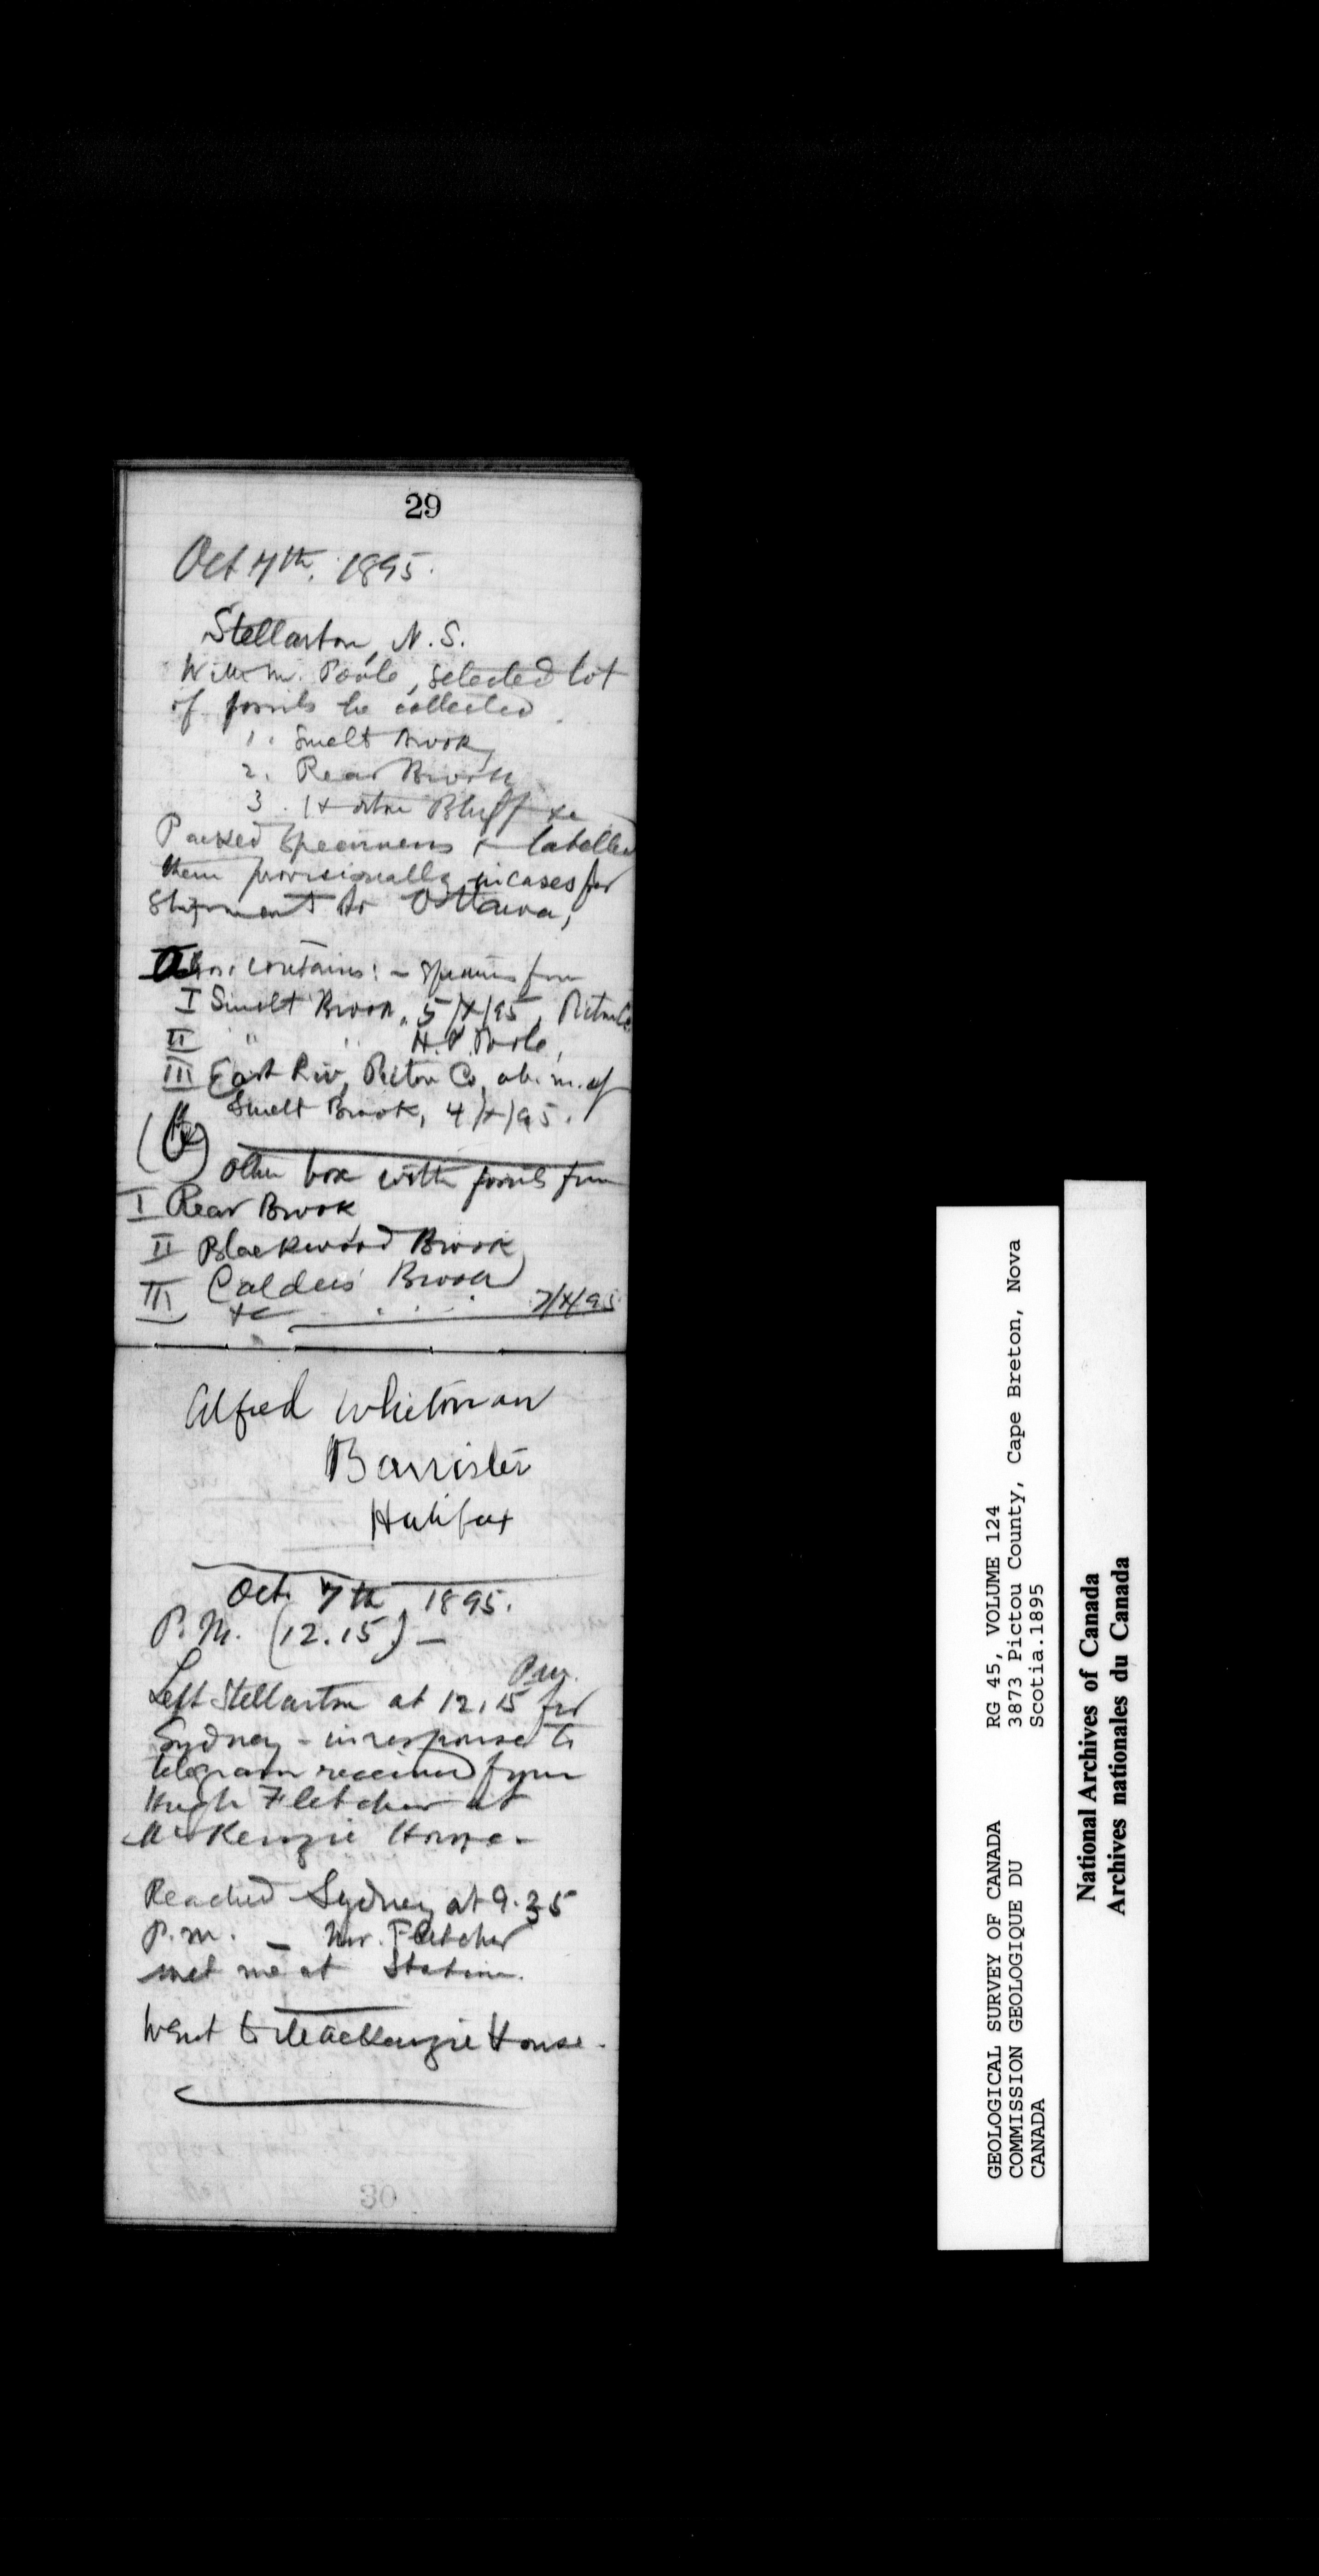 29
Oct 7th, 1895.
Stellarton, N.S.
With Mr. Poole, selected lot
of fossils he collected.
1. Smelt Brook,
2. Rear Brook
3. Horton Bluff &c
Packed specimens & labelled
them provisionally in cases for
shipment to Ottawa,
box contains: - specimens from
I Smelt Brook, 5/X/95, Pictou Co.
II " " H.S. Poole,
III East Riv, Pictou Co, ab. m. of
Smelt Brook, 4/X/95.
other box with fossils from
I Rear Brook,
II Blackwood Brook,
III Calder's Brook
&c 7/X/95
Alfred Whitman
Barrister
Halifax
Oct. 7th 1895.
P.M. (12.15) —
Left Stellarton at 12.15 P.M. for
Sydney - in response to
telegram received from
Hugh Fletcher at
McKenzie House -
Reached Sydney at 9.35
P.M. — Mr. Fletcher
met me at Station.
Went to MacKenzie House.
30
GEOLOGICAL SURVEY OF CANADA
COMMISSION GEOLOGIQUE DU
CANADA
RG 45, VOLUME 124
3873 Pictou County, Cape Breton, Nova
Scotia.1895
National Archives of Canada
Archives nationales du Canada